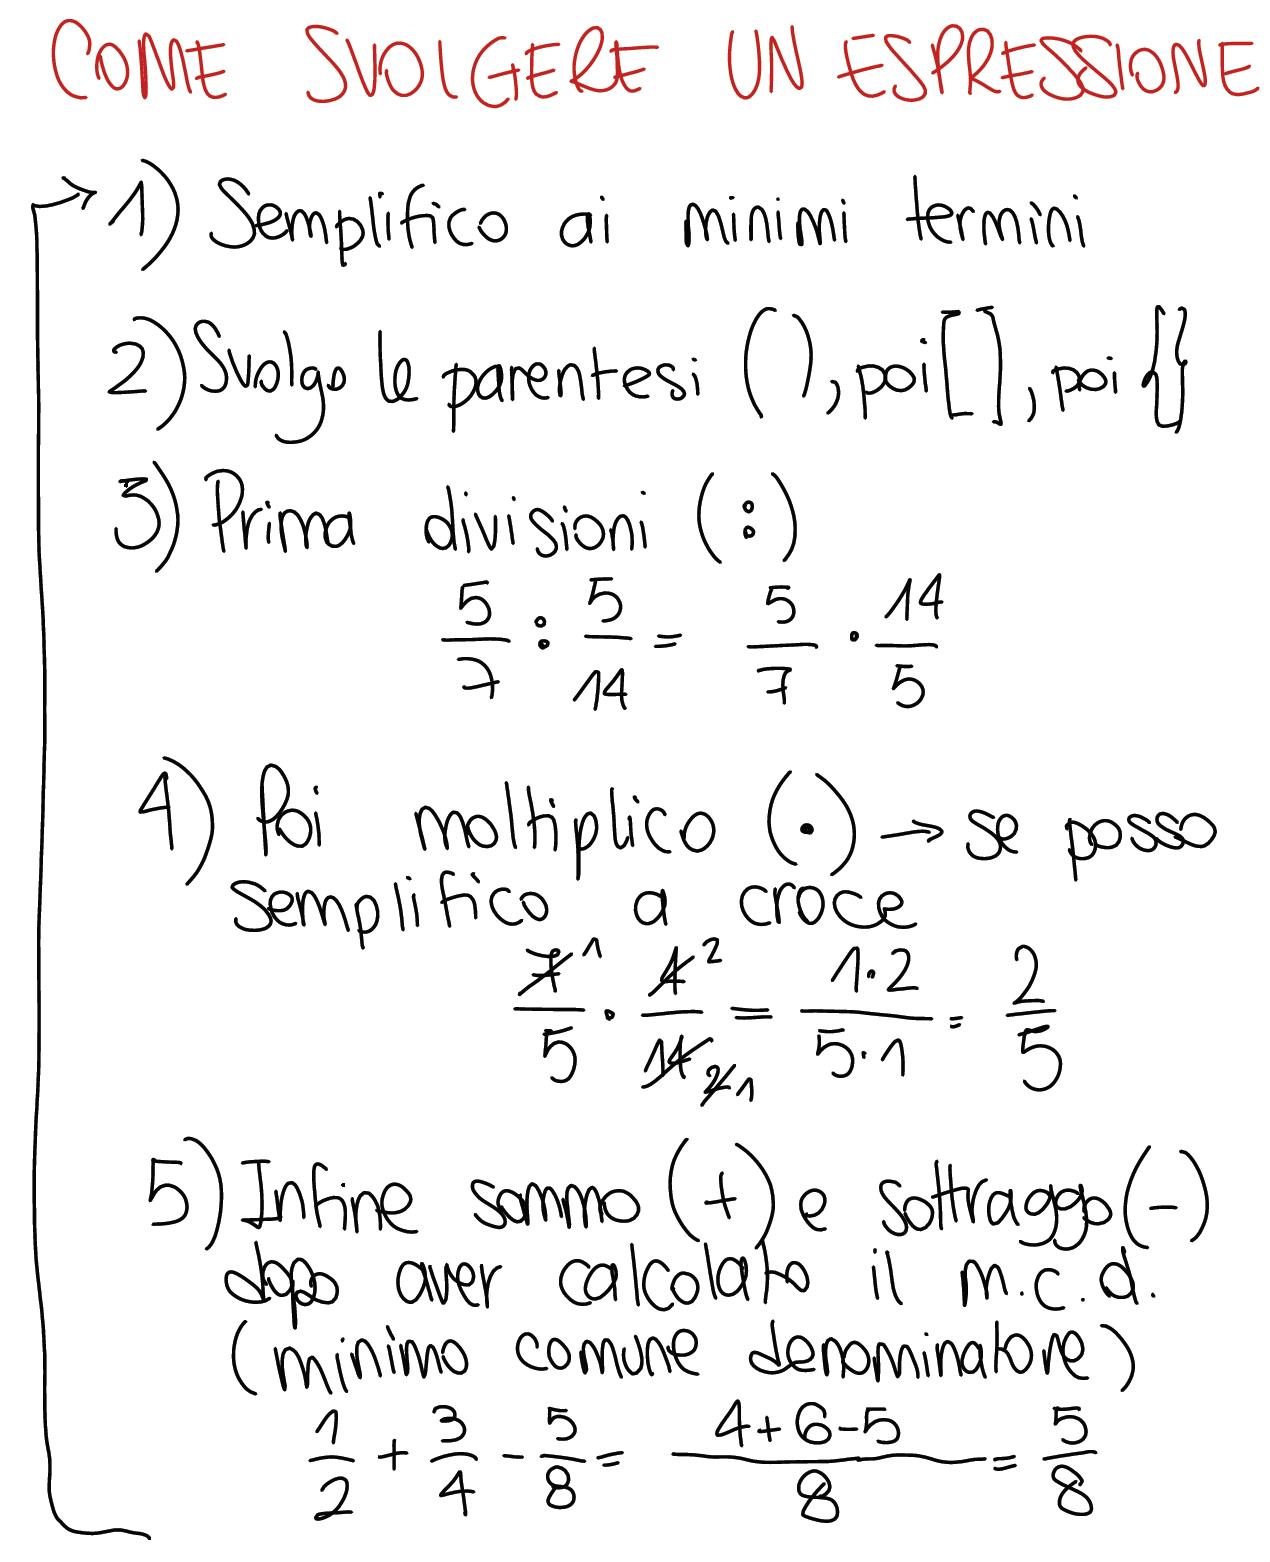 COME SVOLGERE UN ESPRESSIONE
1) Semplifico ai minimi termini
2) Svolgo le parentesi ( ), poi [ ], poi { }
3) Prima divisioni (:)
5/7 : 5/14 = 5/7 · 14/5
4) Poi moltiplico (·) → se posso
semplifico a croce
7̸¹/5 · 4̸²/1̸4̸ 2̸ 1 = 1·2/5·1 = 2/5
5) Infine sommo (+) e sottraggo (-)
dopo aver calcolato il m.c.d.
(minimo comune denominatore)
1/2 + 3/4 - 5/8 = 4+6-5/8 = 5/8